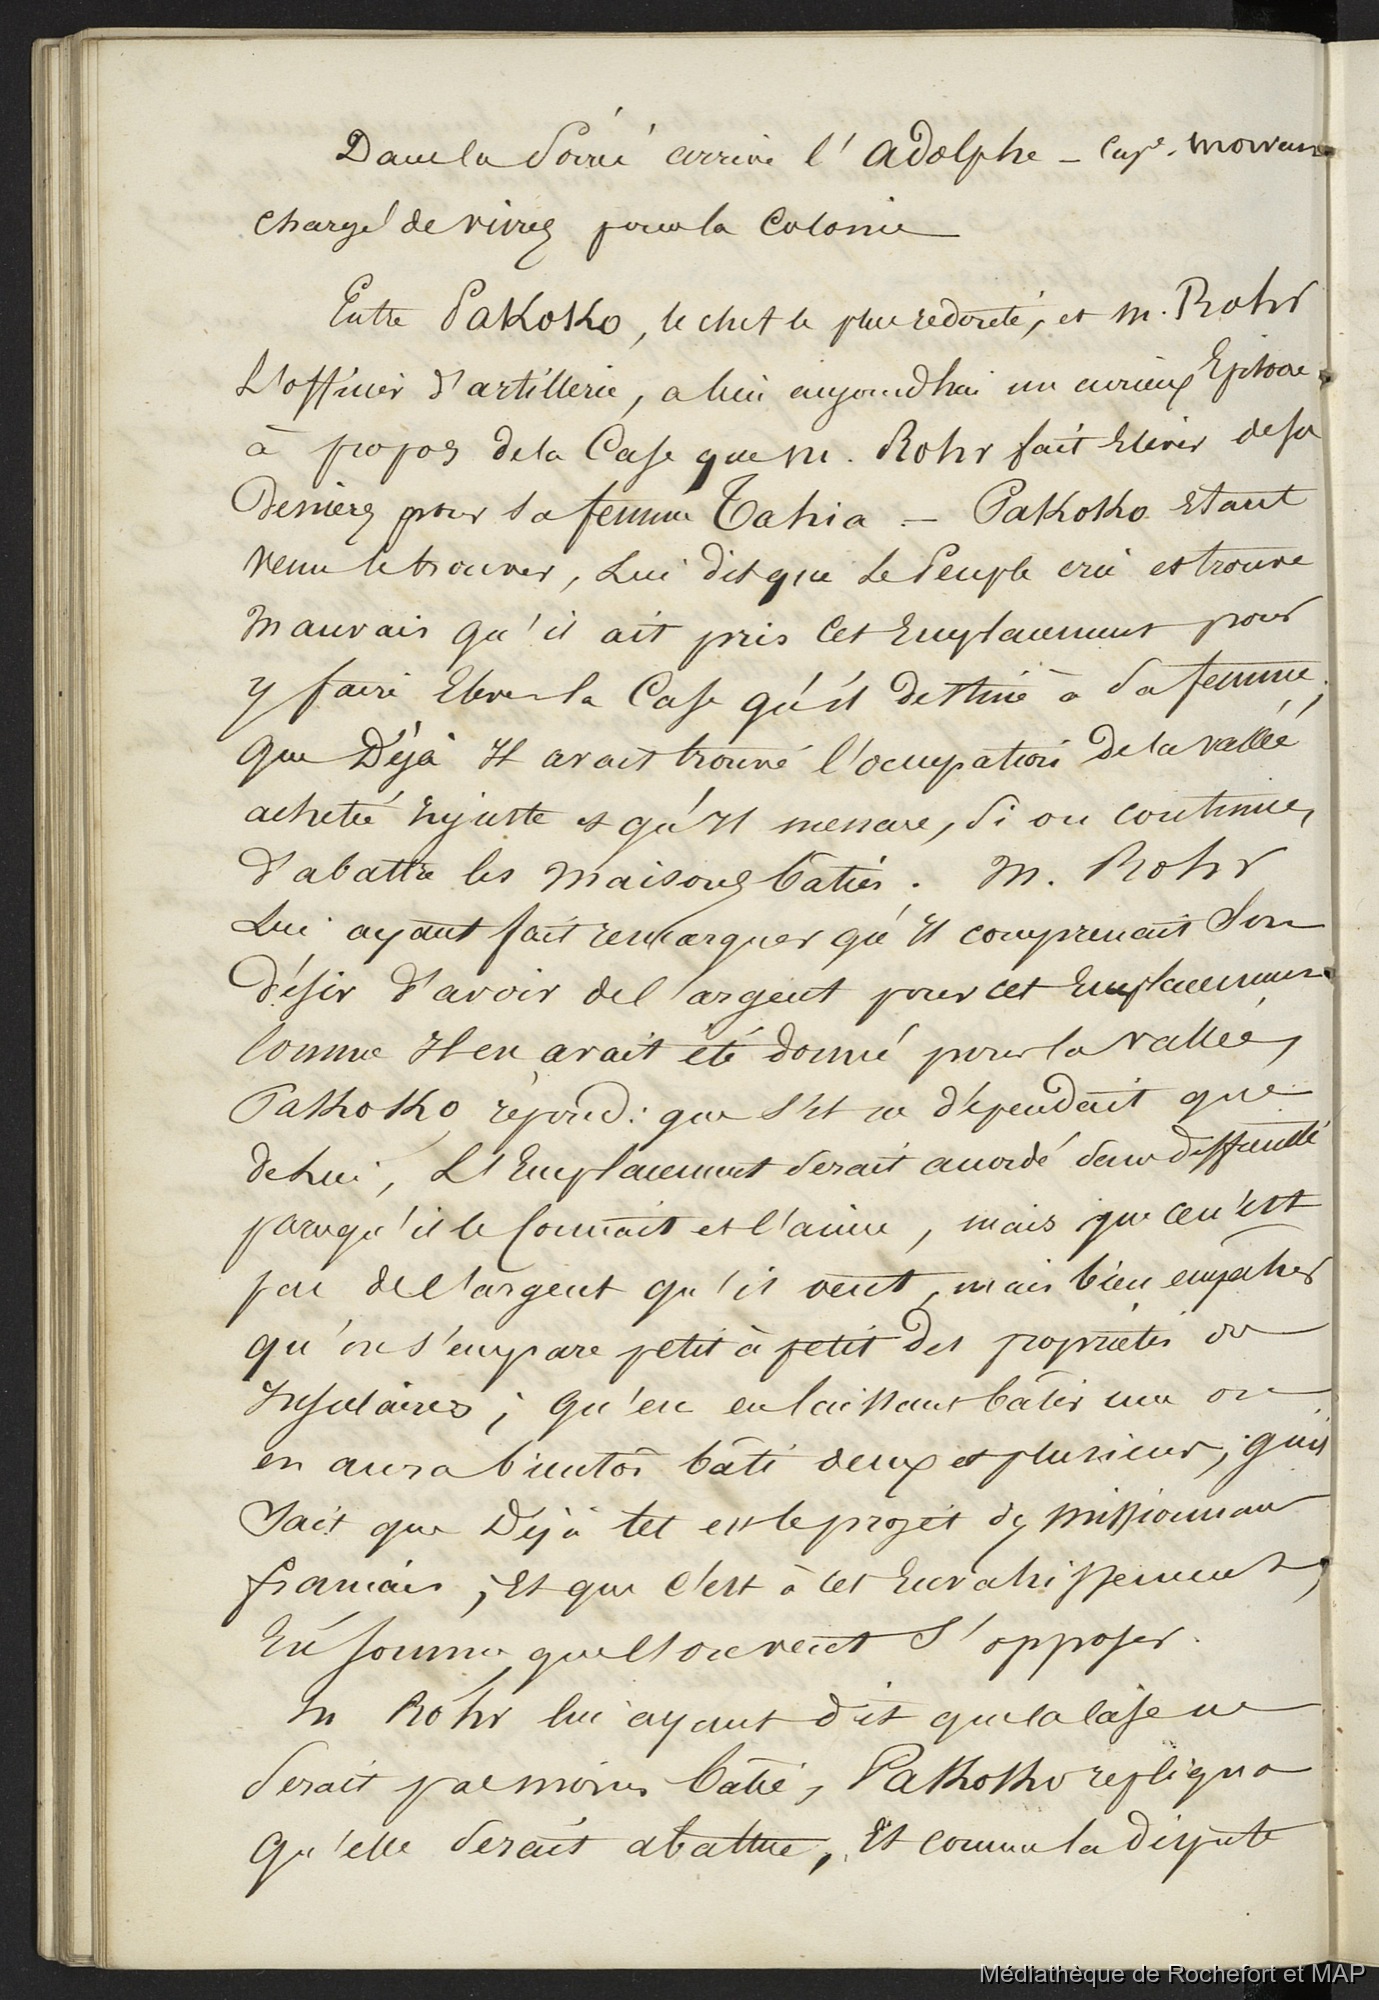 Dans la soirée arrive l'Adolphe – Cape. Morvan
chargé de vivres pour la Colonie
Entre Pakoko, le chef le plus redouté, et M. Rohr
L'officier d'artillerie, a lieu aujourdhui un curieux Episode
à propos de la Case que M. Rohr fait Elever de ses
Deniers pour sa femme Tahia – Pakoko Etant
venu le trouver, Lui dit que le Peuple crie et trouve
Mauvais qu'il ait pris Cet Emplacement pour
y faire Elever la Case qu'il destine à sa femme;
que Déjà Il avait trouvé l'ocupation de la vallée
achetée Injuste et qu'Il menace, si on continue,
d'abattre les Maisons baties. M. Rohr
Lui ayant fait remarquer qu'Il comprenait Son
désir d'avoir de l'argent pour cet Emplacement
Comme Il en avait été donné pour la vallée,
Pakoko répond: que s'il ne dépendait que
de Lui, L'Emplacement serait accordé sans difficulté
parcequ'il le Connait et l'aime, mais que ce n'est
pas de l'argent qu'il veut, mais bien empêcher
qu'on s'empare petit à petit des propriétés des
Insulaires; qu'en en laissant bâtir une on
en aura bientôt bâti deux et plusieurs; qu'il
sait que Déjà tel est le projet des Missionnaires
français; Et que c'est à cet Envahissement,
En somme, que l'on veut s'opposer.
M Rohr lui ayant dit que la Case ne
serait pas moins batie, Pakoko repliqua
qu'elle serait abattue, Et comme la dispute
Médiathèque de Rochefort et MAP